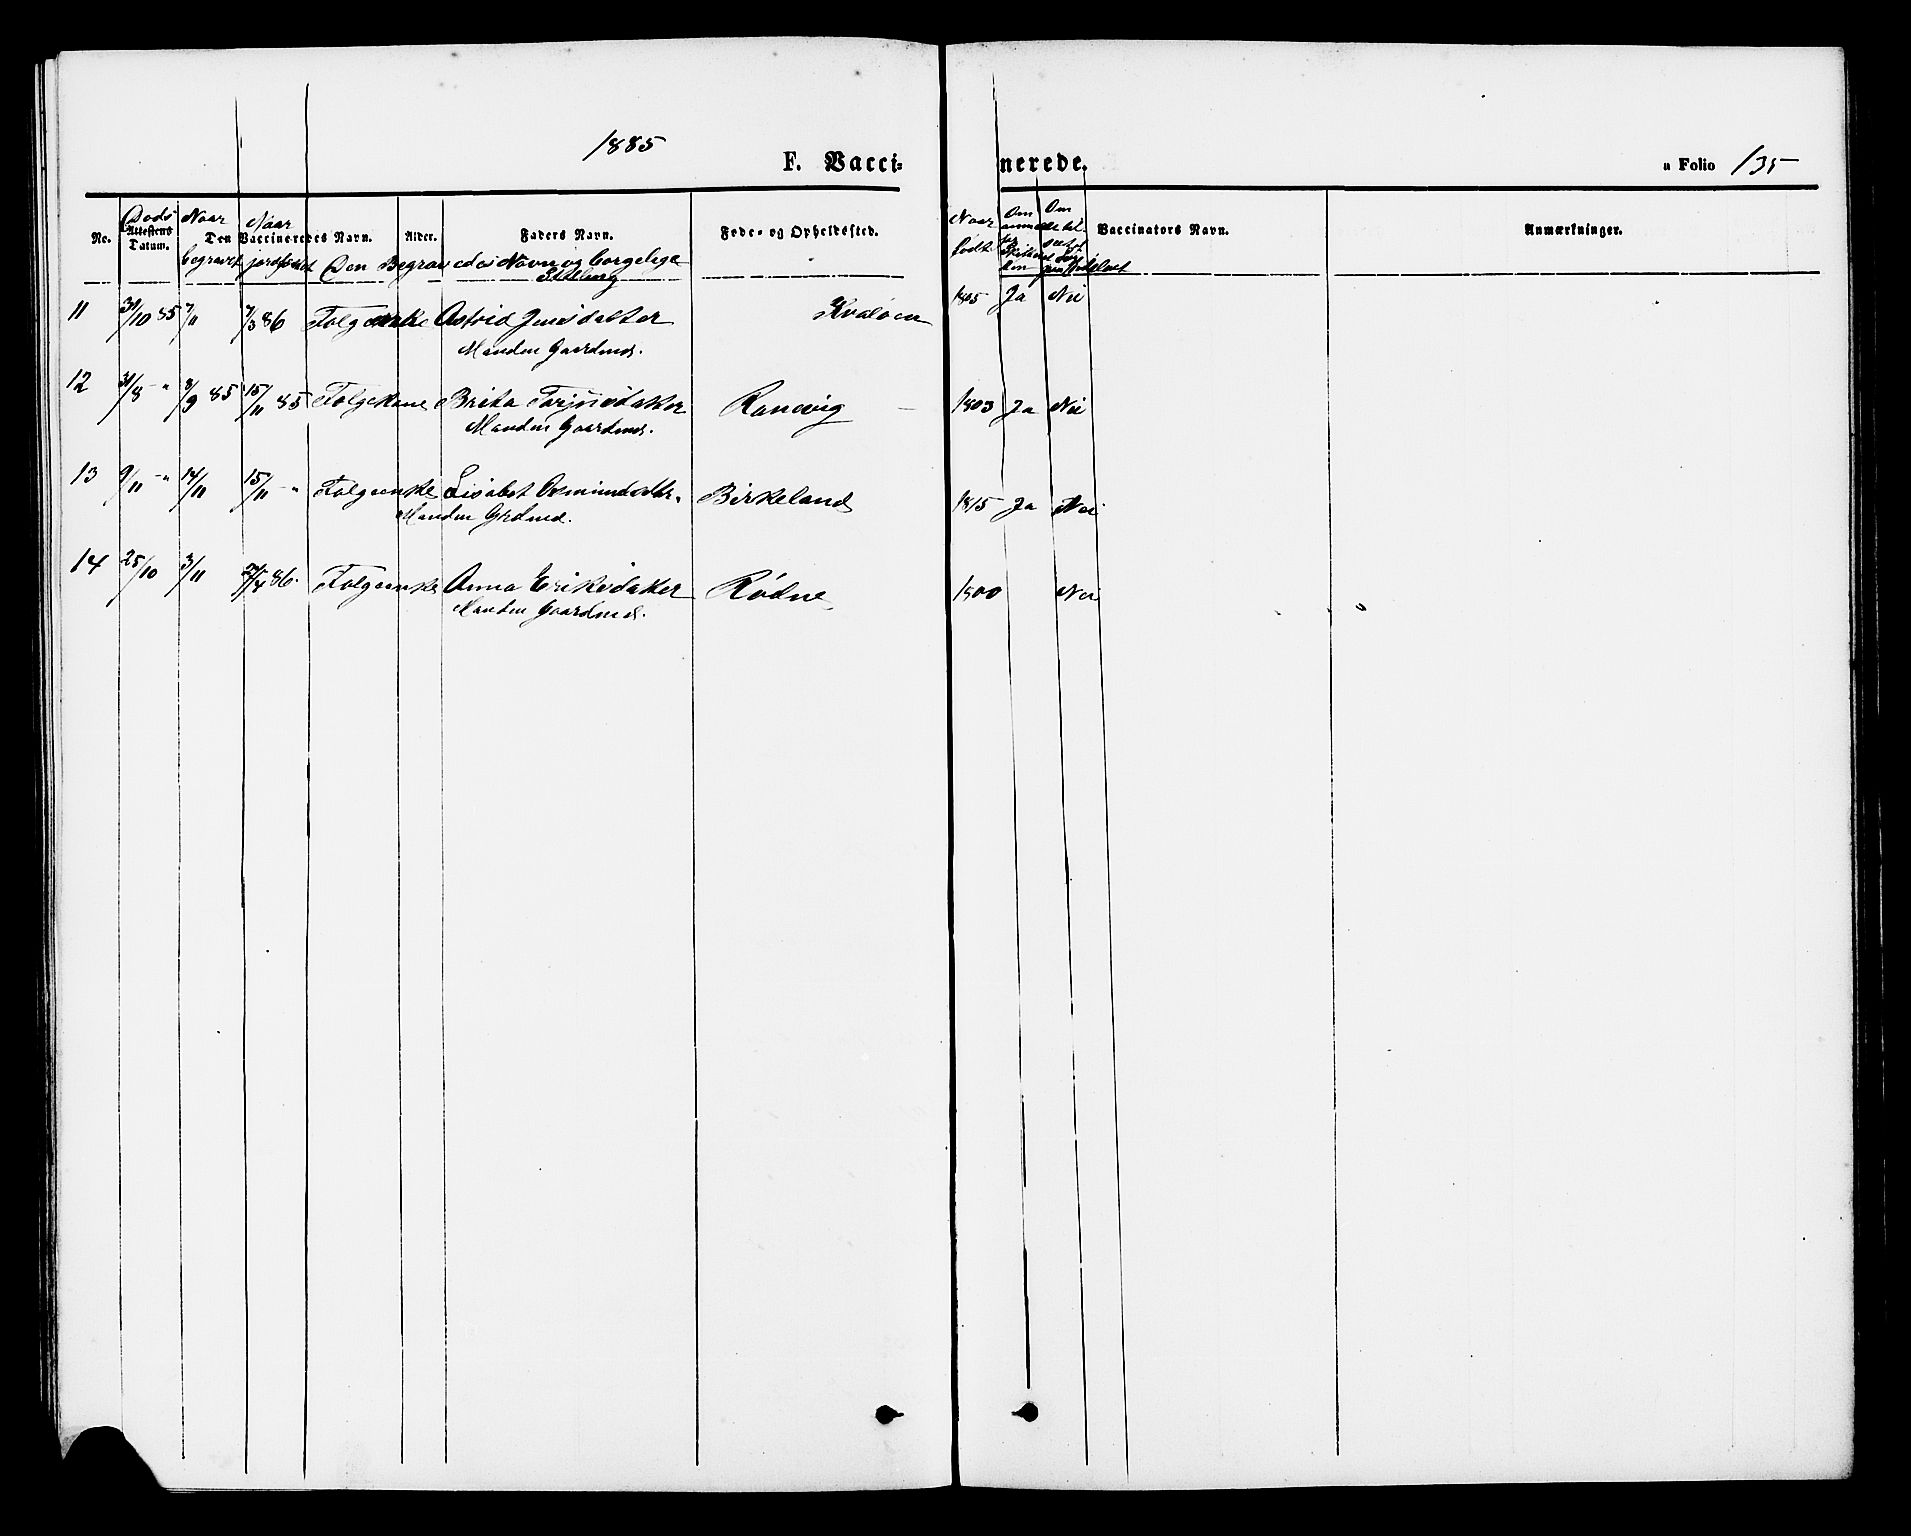 1885
F. Vacci= nerede. a Folio 135
No. Døds Attestens Datum. Naar begravet Naar jordfæstet Den Vaccineredes Navn. Alder. Faders Navn. Føde= og Opholdssted. Naar født Om Om Vaccinators Navn. Anmærkninger.
Den Begravedes Navn og borgelige Stilling
11 31/10 85 7/11 7/3 86 Folgeenke Astrid Jensdatter Kvaløen 1805 Ja Nei
Manden Gaardmd.
12 31/8 - " 8/9 85 15/11 85 Folgekone Brita Torjusdatter Ranvig - 1803 Ja Nei
Manden Gaardmd.
13 9/11 - " 14/11 15/11 - " Folgeenke Lisabet Osmundsdtr. Birkeland 1815 Ja Nei
Manden Grdmd.
14 25/10 3/11 86. Folgeenke Anna Eriksdatter Rødne 1800 Nei
Manden Gaardmd.